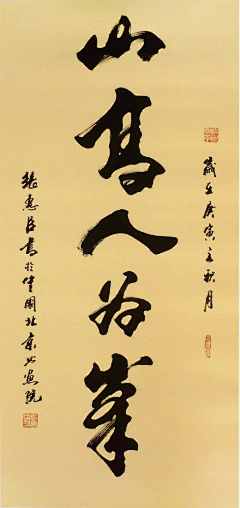 歲在庚寅之秋月
山高人为峯
張惠臣書於中國北京书画院